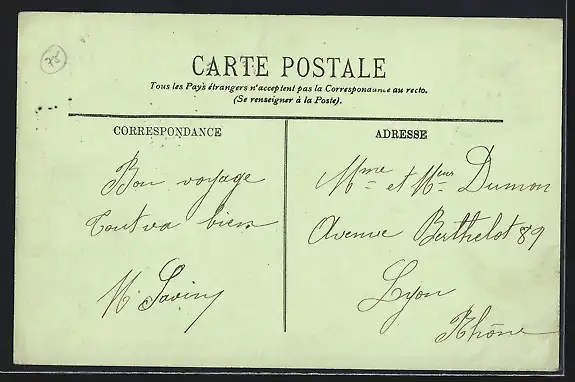 75
CARTE POSTALE
Tous les Pays étrangers n'acceptent pas la Correspondance au recto.
(Se renseigner à la Poste).
CORRESPONDANCE
Bon voyage
Tout va bien
ADRESSE
Mme et Meur Dumon
Avenue Berthelot 89
Lyon
Rhône